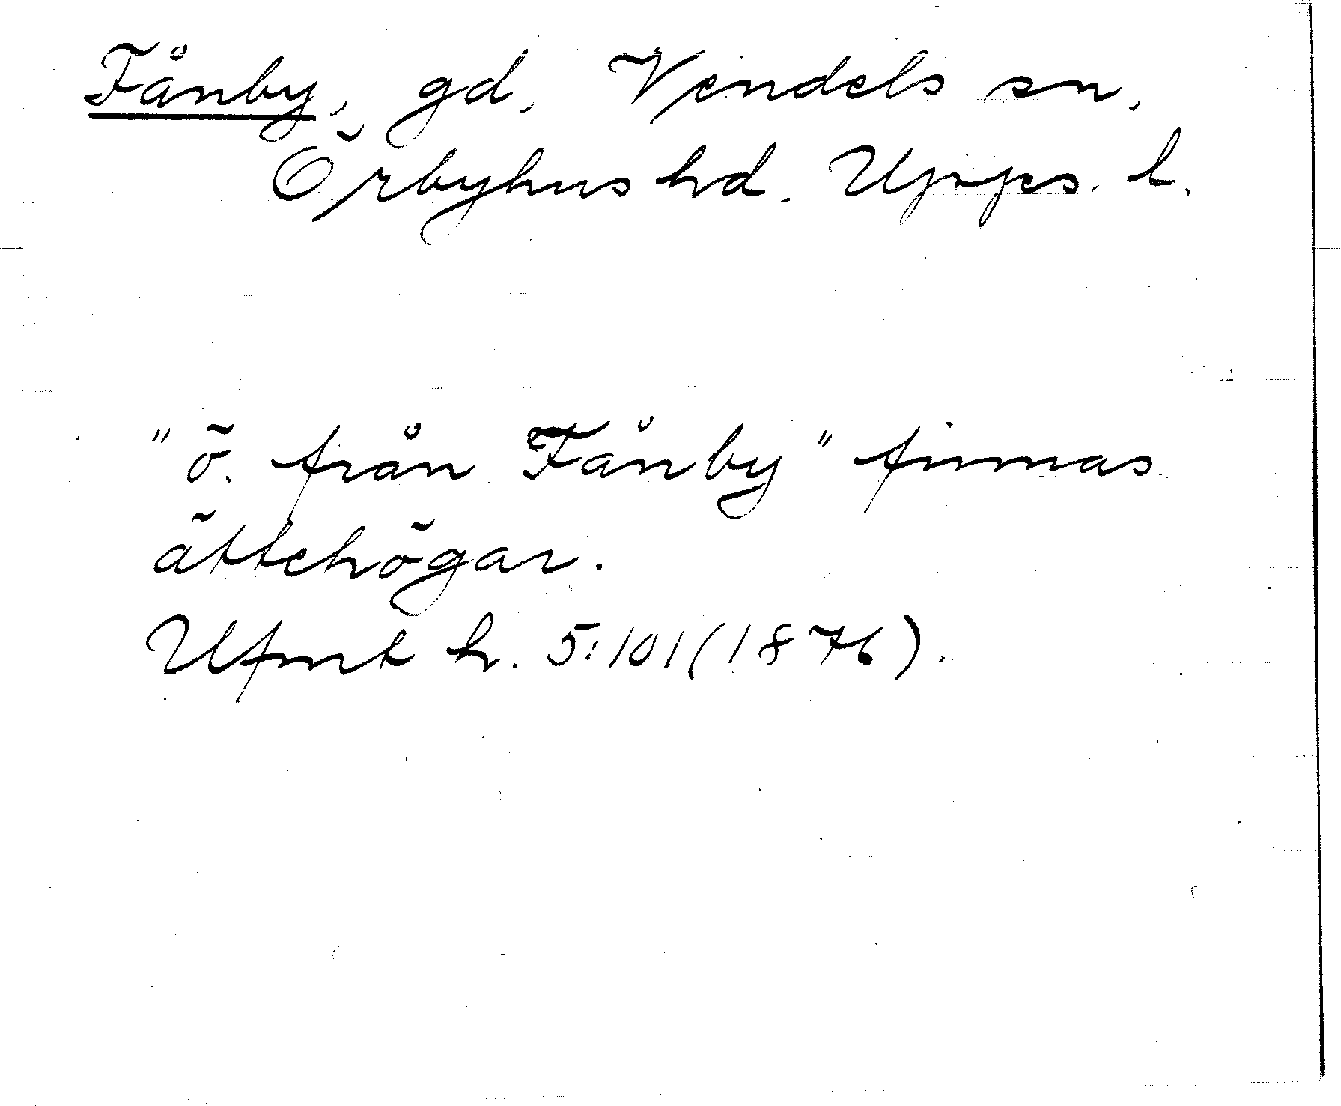 Fånby, gd, Vendels sn,
Örbyhus hd. Upps. l.
"ö. från Fånby" finnas
ättehögar.
Ufmt h. 5:101(1876).